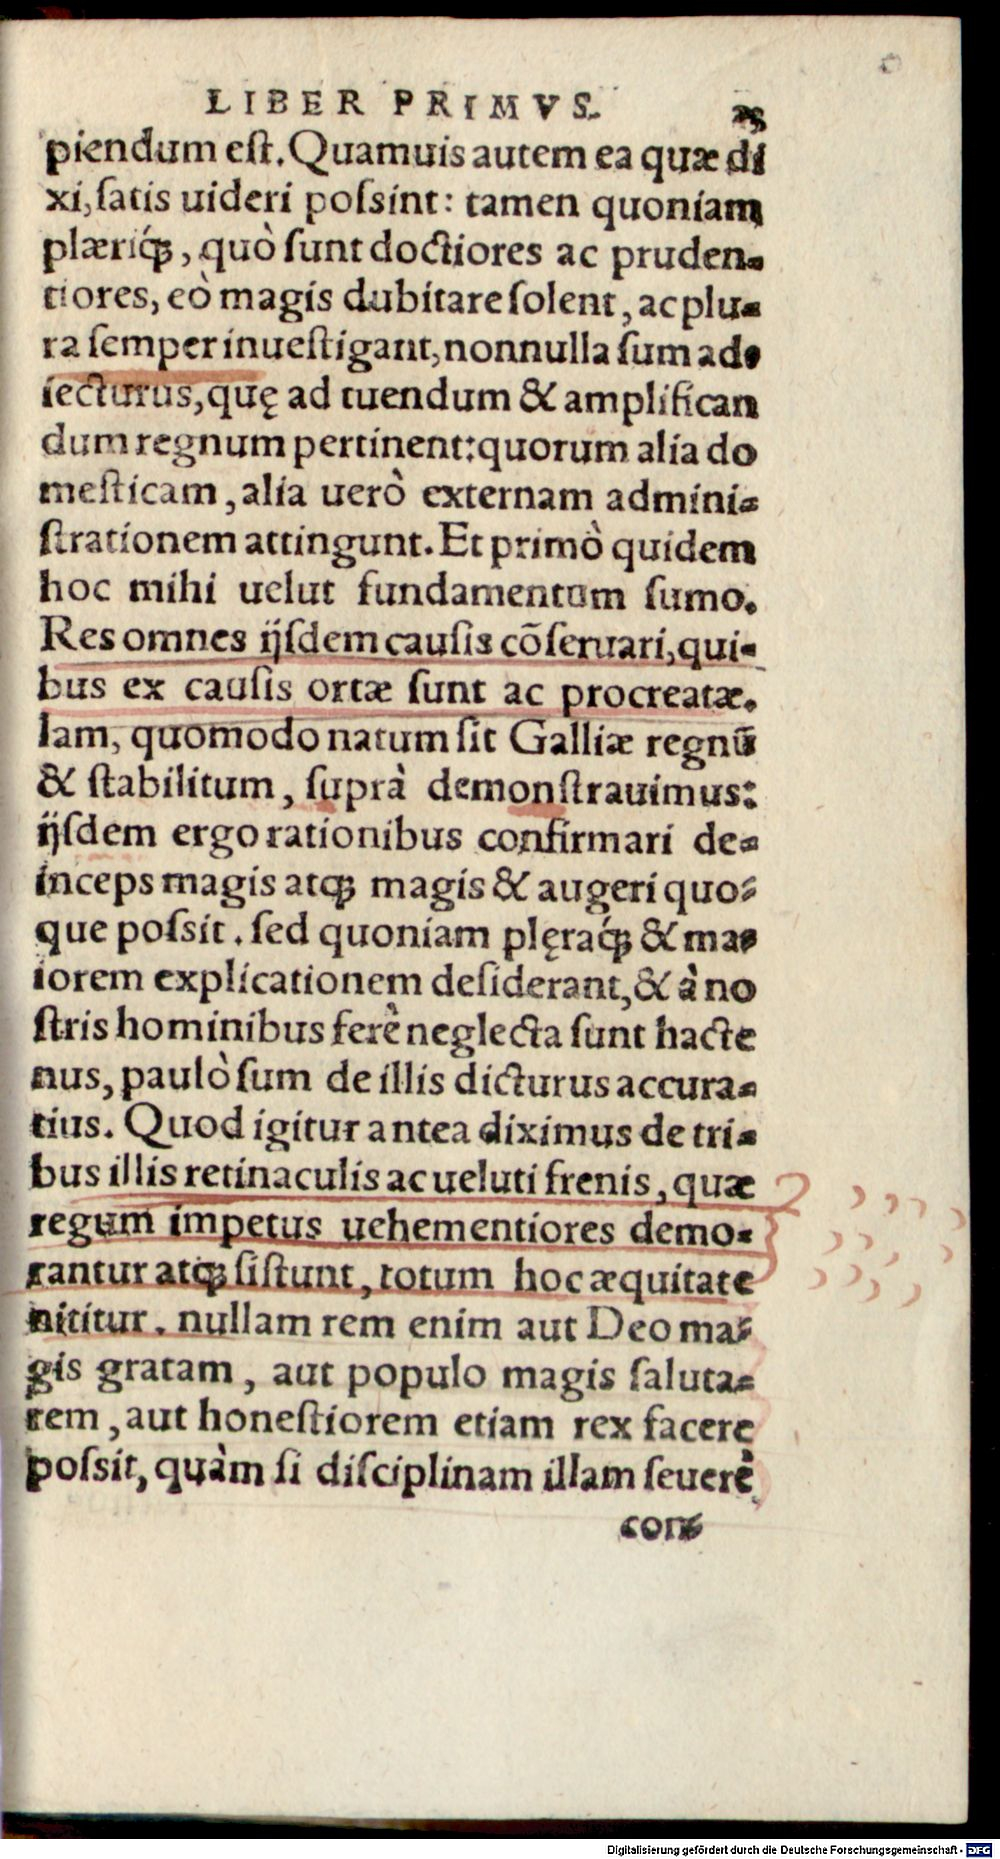 LIBER PRIMVS.
piendum est. Quamuis autem ea quæ di
xi, satis uideri possint: tamen quoniam
plæriq́ꝫ, quò sunt doctiores ac pruden-
tiores, eò magis dubitare solent, ac plu-
ra semper inuestigant, nonnulla sum ad-
iecturus, quę ad tuendum & amplifican
dum regnum pertinent: quorum alia do
mesticam, alia uerò externam admini-
strationem attingunt. Et primò quidem
hoc mihi uelut fundamentum sumo.
Res omnes ijsdem causis cõseruari, qui-
bus ex causis ortæ sunt ac procreatæ.
Iam, quomodo natum sit Galliæ regnũ
& stabilitum, suprà demonstrauimus:
ijsdem ergo rationibus confirmari de-
inceps magis atqꝫ magis & augeri quo-
que possit. sed quoniam plęraq́ꝫ & ma-
iorem explicationem desiderant, & à no
stris hominibus ferè neglecta sunt hacte
nus, paulò sum de illis dicturus accura-
tius. Quod igitur antea diximus de tri-
bus illis retinaculis ac ueluti frenis, quæ
regum impetus uehementiores demo-
rantur atqꝫ sistunt, totum hoc æquitate
nititur. nullam rem enim aut Deo ma-
gis gratam, aut populo magis saluta-
rem, aut honestiorem etiam rex facere
possit, quàm si disciplinam illam seuerè
con-
Digitalisierung gefördert durch die Deutsche Forschungsgemeinschaft - DFG